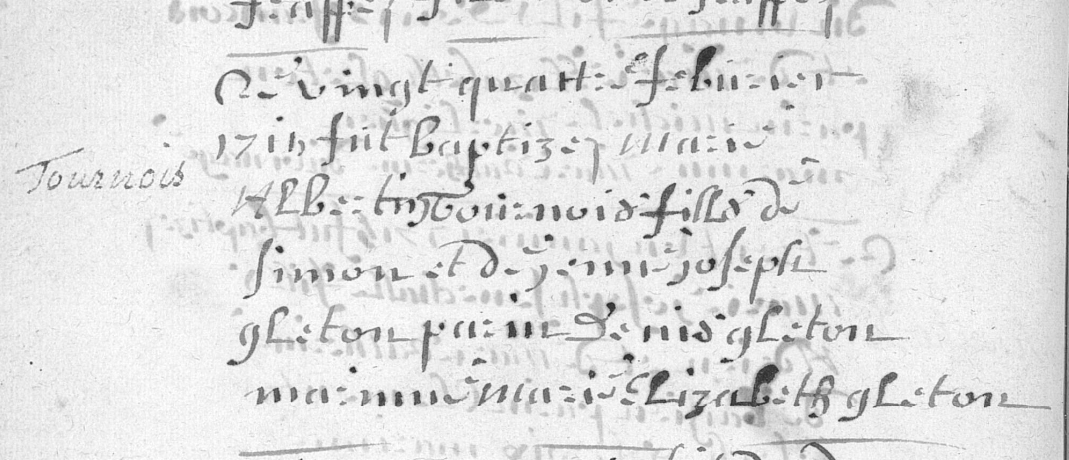 Ce vingt quattre feburier
fut baptizez Marie
Tournois
Tournois fille de
simon et de jenne joseph
gleton parin Denis gleton
marinne Marie Elizabeth gleton